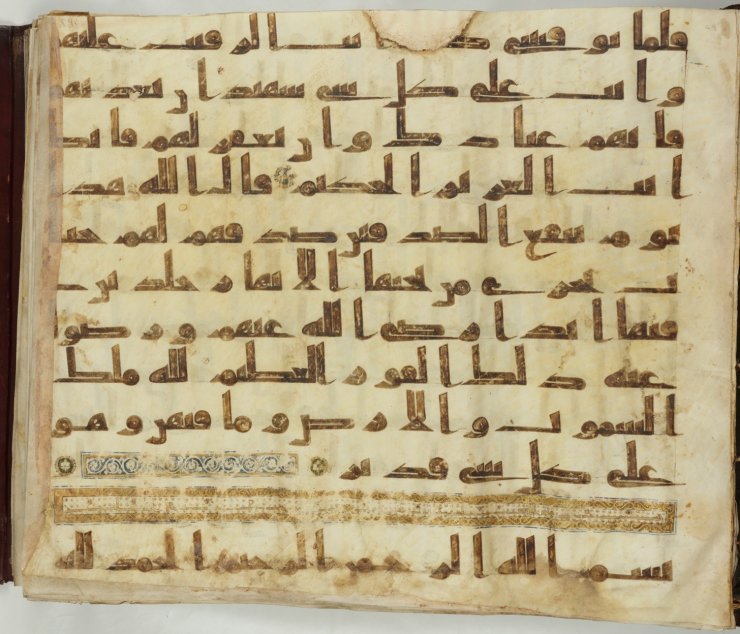 فلما توفيتني كنت انت الرقيب عليهم
وانت على كل شي شهيد ان تعذبهم
فانهم عبادك وان تغفر لهم فانك
انت العزيز الحكيم قال الله هذا
يوم ينفع الصدقين صدقهم لهم جنـ
ت تجري من تحتها الانهر خلدين
فيها ابدا رضي الله عنهم ورضوا
عنه ذلك الفوز العظيم لله ملك
السموت والارض وما فيهن وهو
على كل شي قدير
بسم الله الرحمن الرحيم الحمد لله